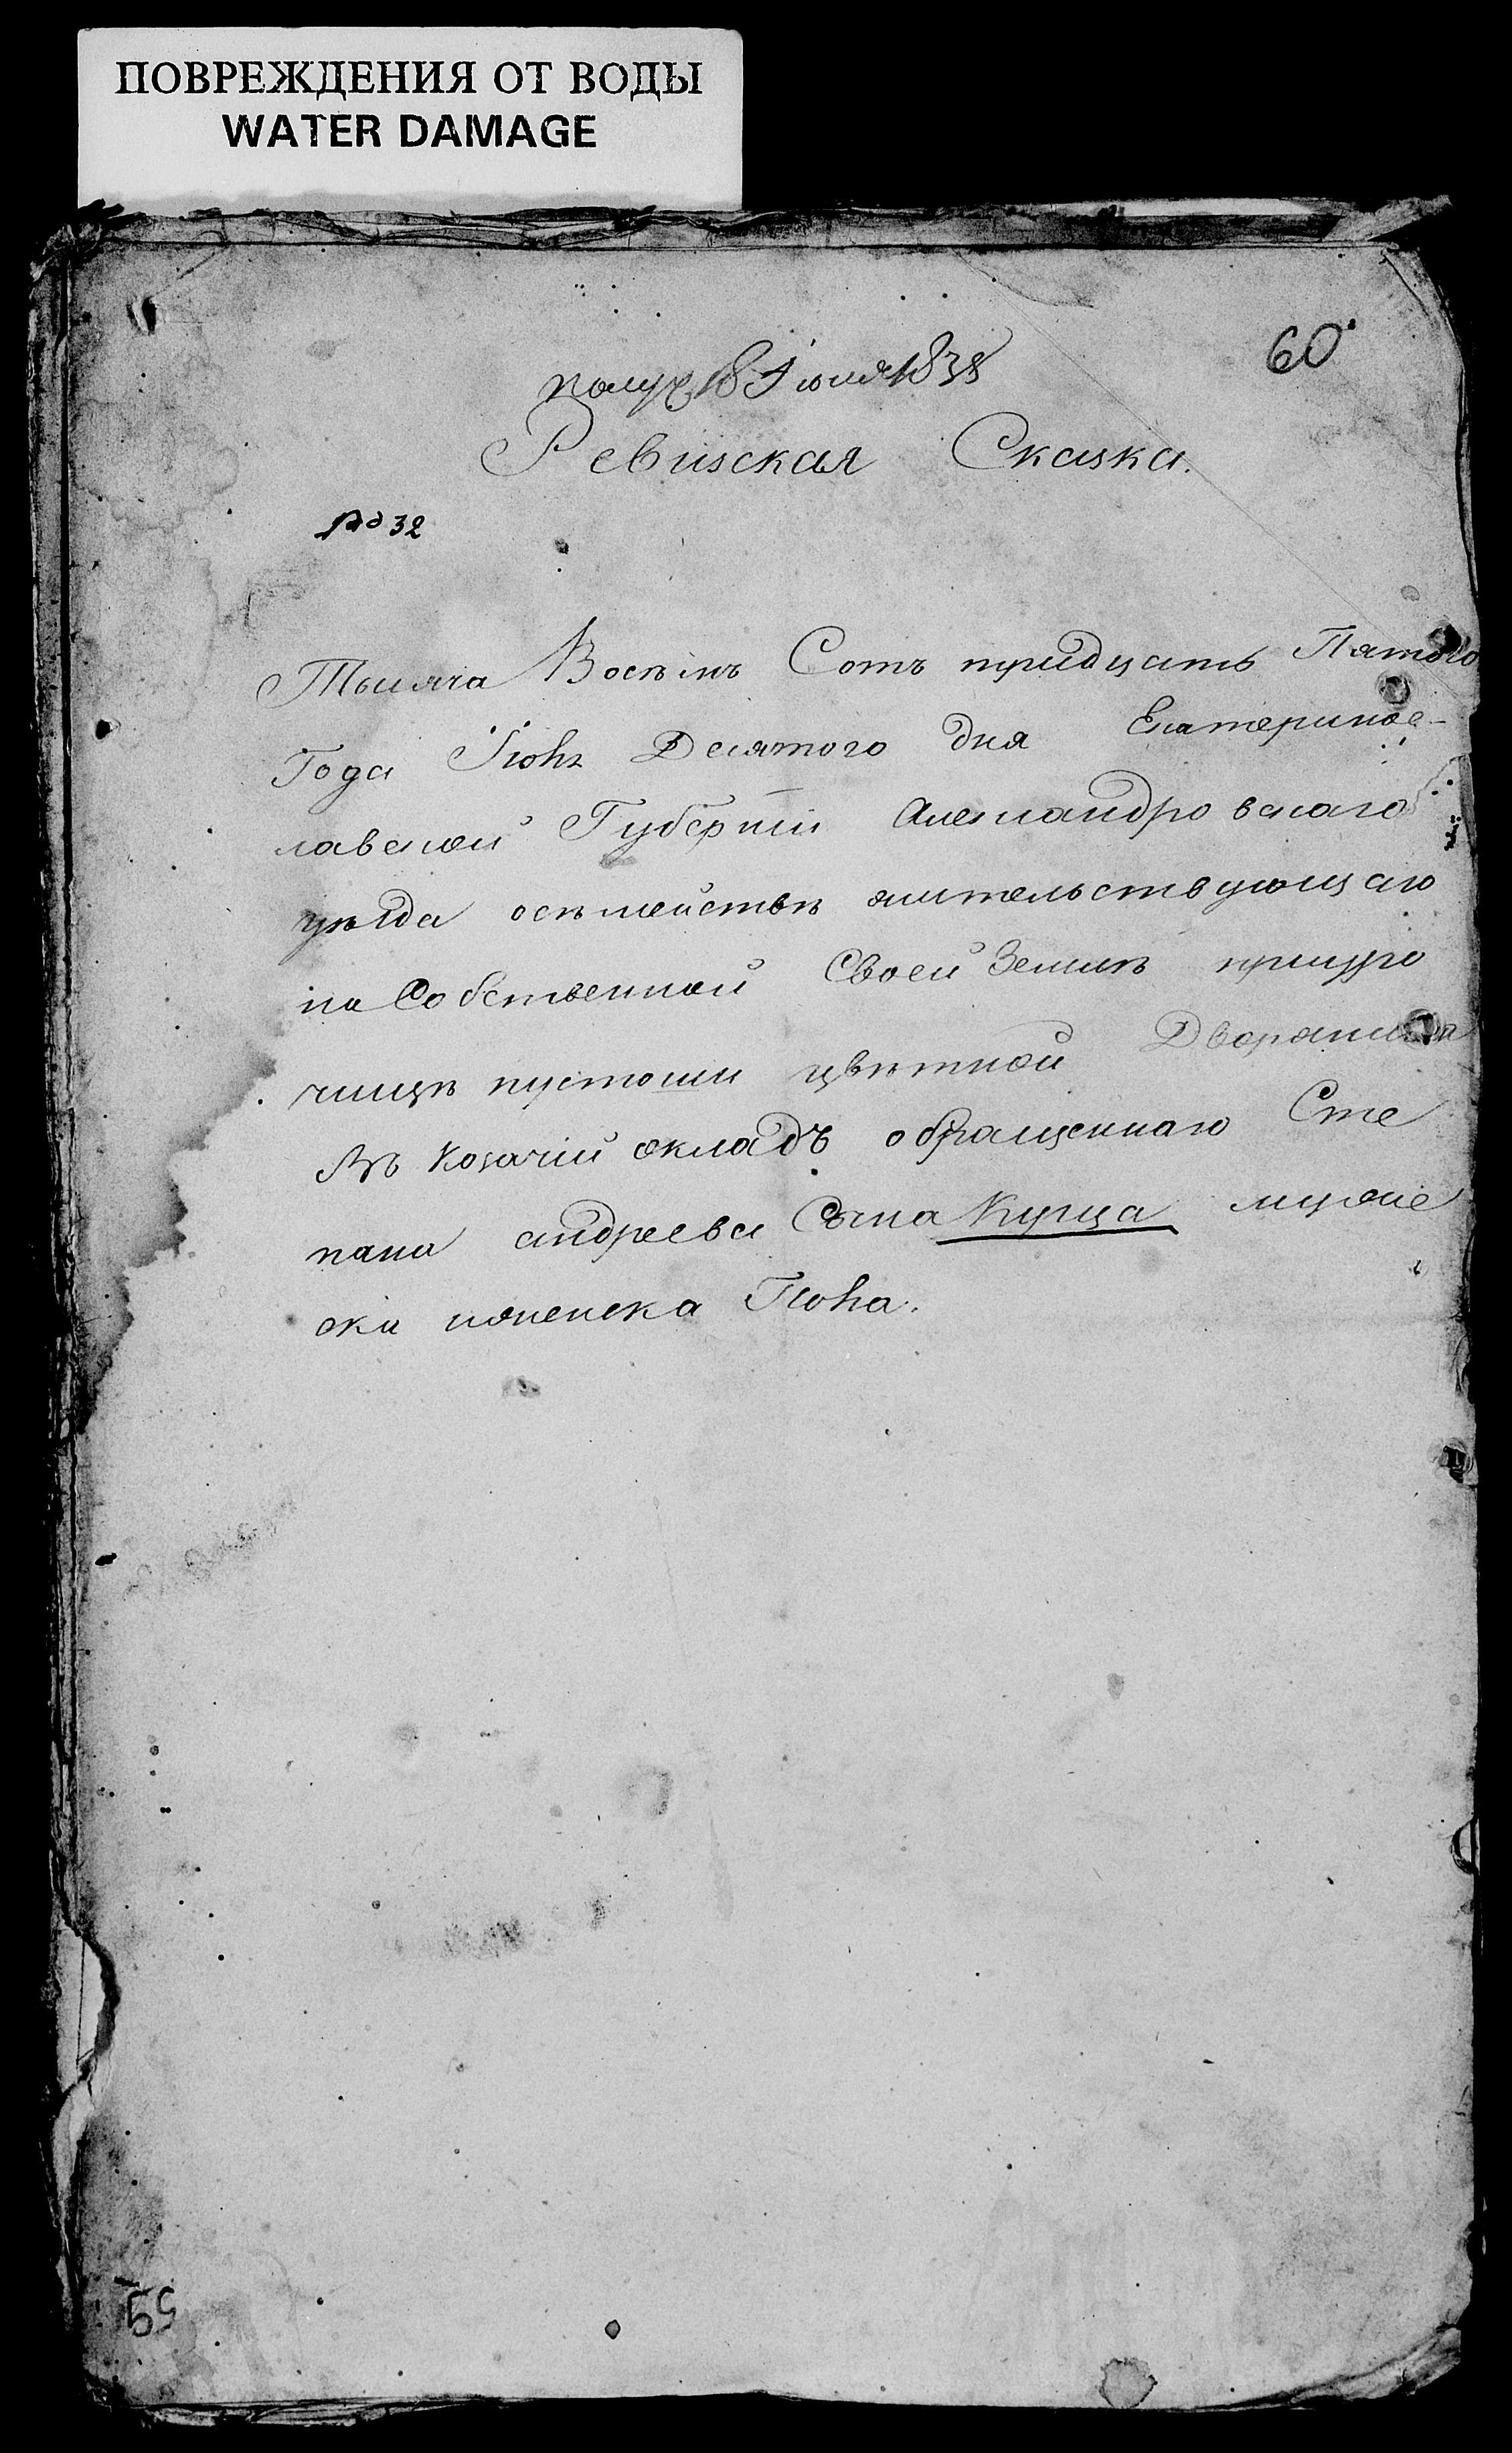 ПОВРЕЖДЕНИЯ ОТ ВОДЫ
WATER DAMAGE
60
получ 18 Июля 1835
Ревиская Сказка.
№ 32
Тысяча Восѣмъ Сотъ тридцать Пятого
Года Июня Десятого дня Екатеринос-
лавской Губерніи Александровскаго
уѣзда осѣмействѣ жительствующаго
на Собственной Своей Земли при
пустоши цвѣтной Дворянина
Въ козачій окладъ обращеннаго Сте
пана андреева Сына Куща муже
ска иженска Пола.
59